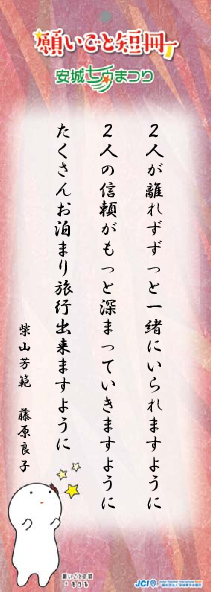 願いごと短冊
安城七夕まつり
２人が離れずずっと一緒にいられますように
２人の信頼がもっと深まっていきますように
たくさんお泊まり旅行出来ますように
柴山芳範 藤原良子
願いごと短冊
JCI